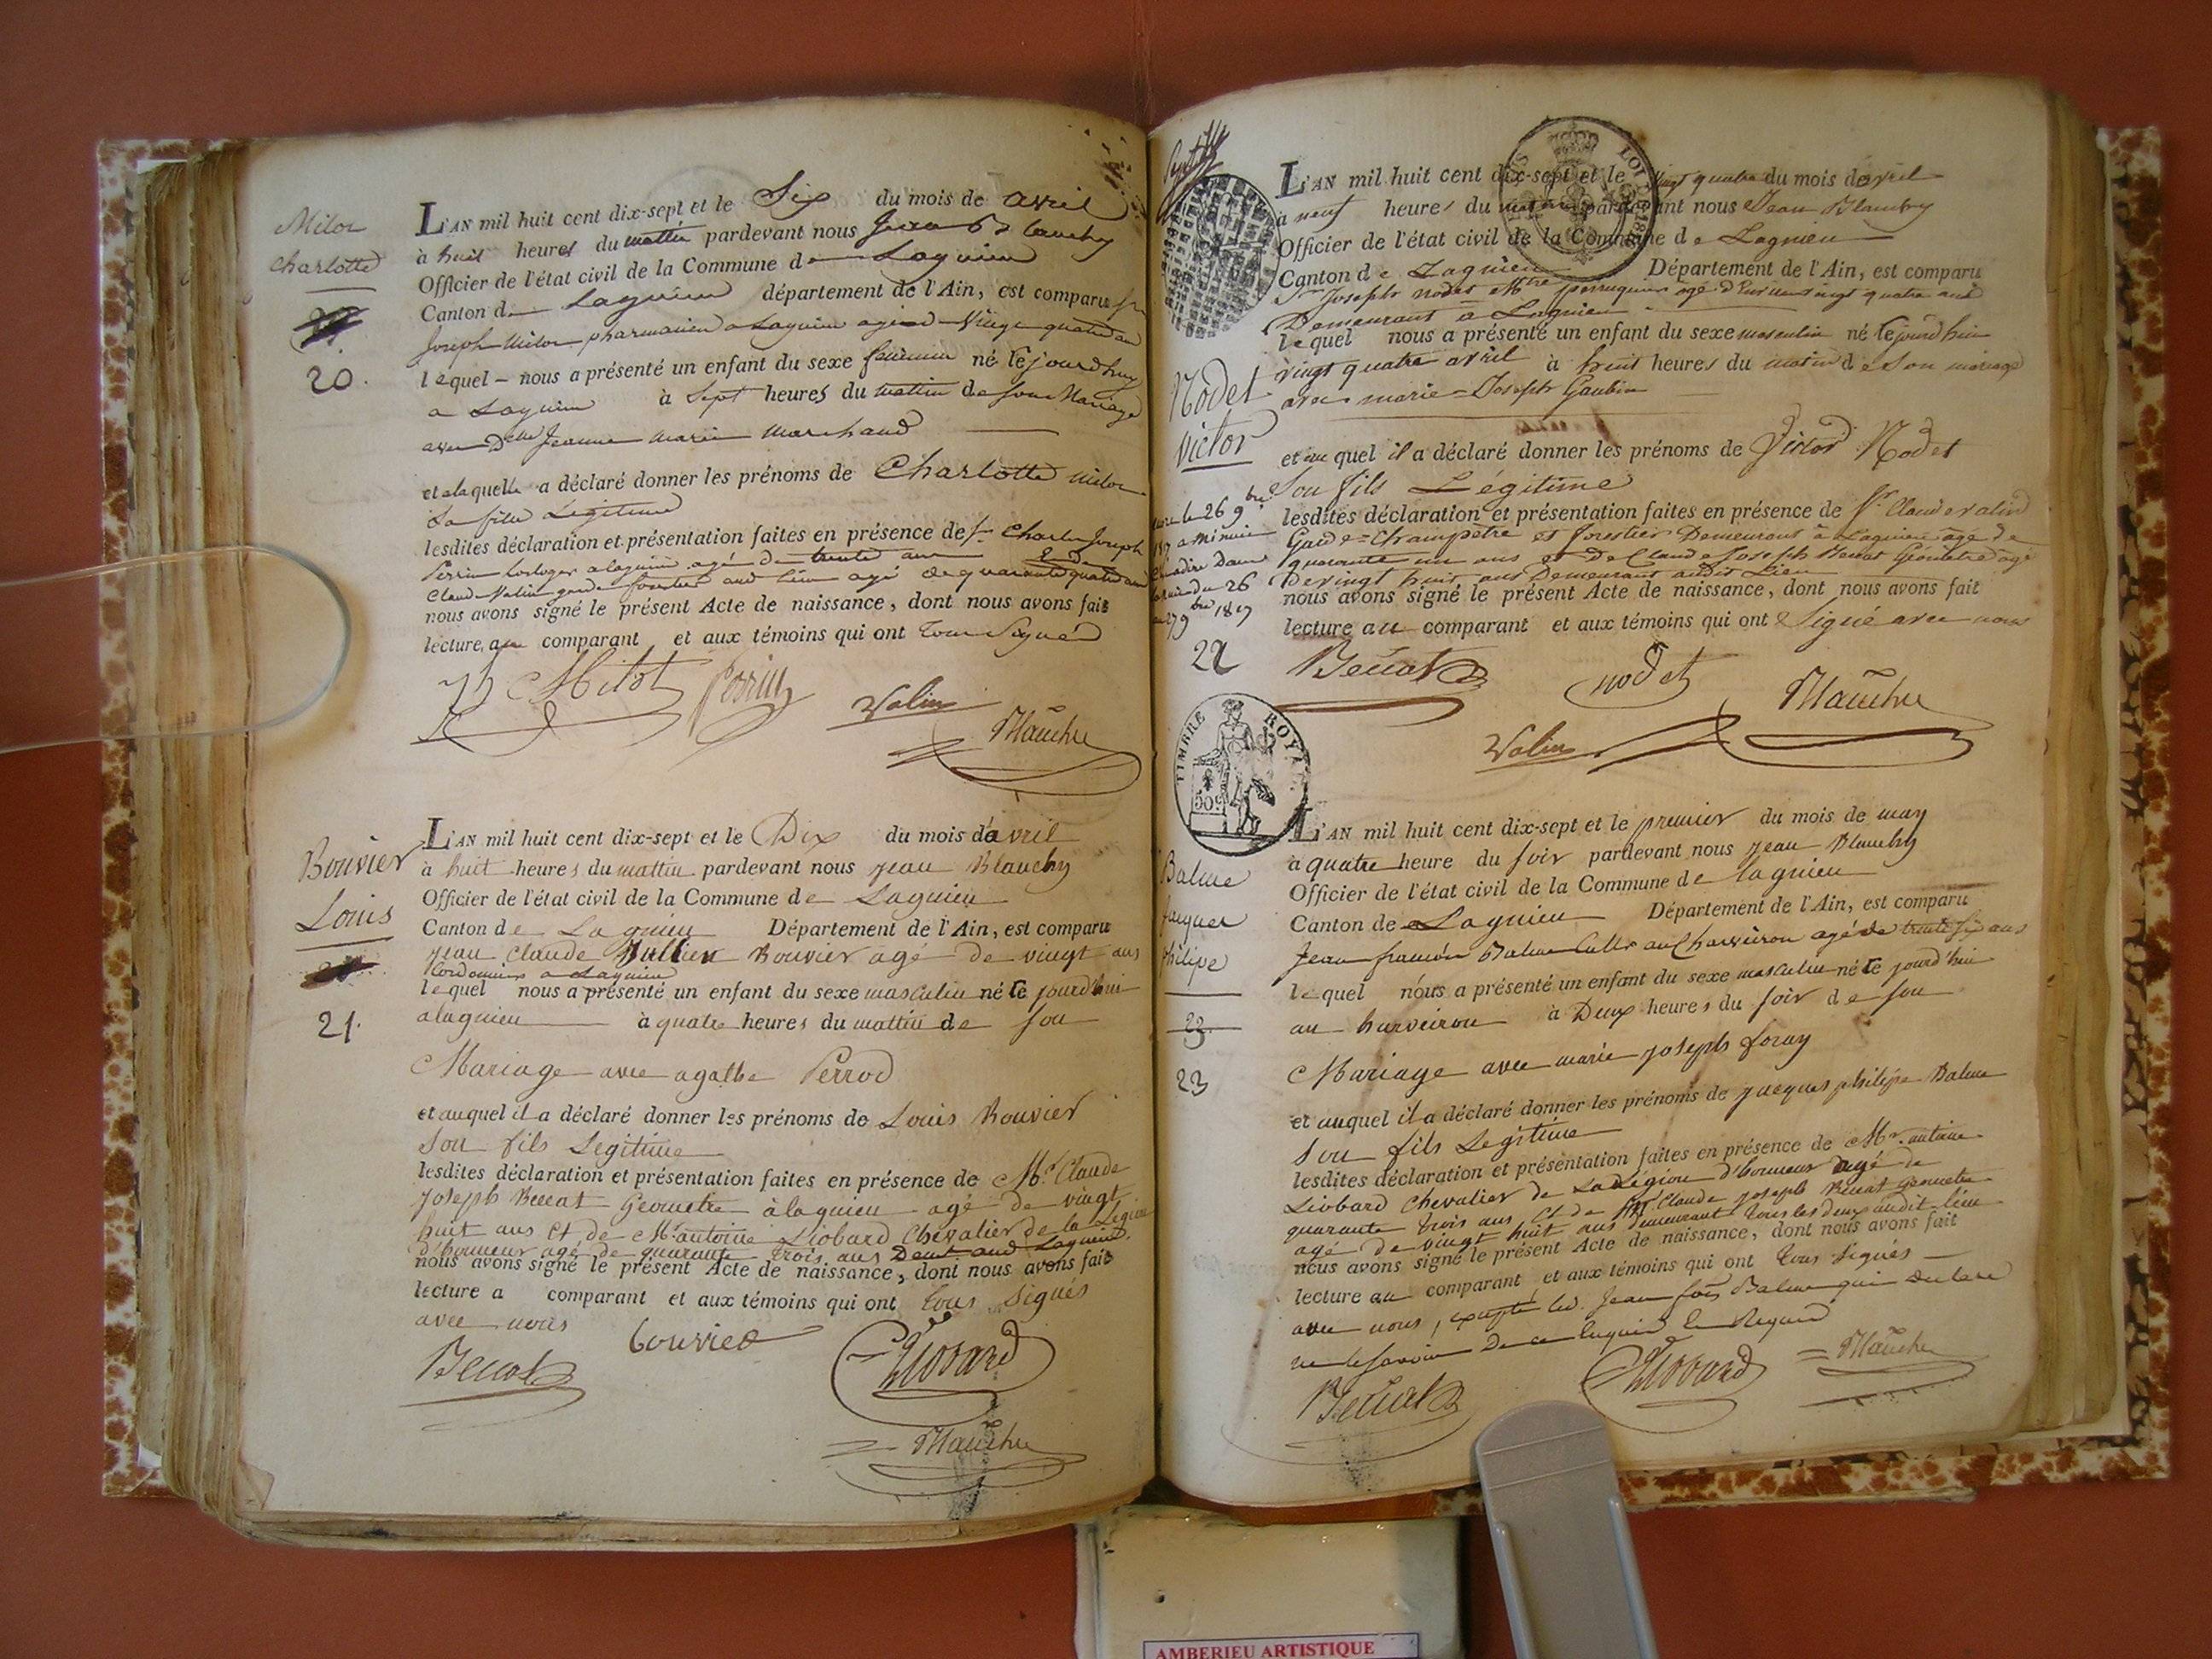 Milot
Charlotte
20.
L'AN mil huit cent dix-sept et le Six du mois de avril
à huit heures du mattin pardevant nous Jean Blanchy
Officier de l'état civil de la Commune de Lagnieu
Canton de Lagnieu département de l'Ain, est comparu Sr
Joseph Milot pharmacien a Lagnieu agé de Vingt quatre ans
lequel nous a présenté un enfant du sexe feminin né le jourdhuy
a Lagnieu à Sept heures du mattin de son Mariage
avec Dlle Jeanne Marie Marchand
et alaquelle a déclaré donner les prénoms de Charlotte Milot
Sa fille Legitime
lesdites déclaration et présentation faites en présence de Sr Charles Joseph
Perrin horloger a lagnieu agé de trente ans & de
Claude Valin garde forestier aud lieu agé de quarante quatre ans
nous avons signé le présent Acte de naissance, dont nous avons fait
lecture, au comparant et aux témoins qui ont tous Signé
Milot Perrin
Valin
Blanchy
Bouvier
Louis
21.
L'AN mil huit cent dix-sept et le Dix du mois d'avril
à huit heures du mattin pardevant nous jean Blanchy
Officier de l'état civil de la Commune de Lagnieu
Canton de Lagnieu Département de l'Ain, est comparu
jean Claude Bouvier agé de vingt ans
Cordonnier a Lagnieu
lequel nous a présenté un enfant du sexe masculin né le jourd'hui
a lagnieu à quatre heures du mattin de son
Mariage avec agathe Perrod
et auquel il a déclaré donner les prénoms de Louis Bouvier
Son fils Legitime
lesdites déclaration et présentation faites en présence de Mr Claude
joseph Beccat Géometre à lagnieu agé de vingt
huit ans et de Mr antoine Liobard Chevalier de la Légion
d'honneur agé de quarante trois ans Demt aud Lagnieu
nous avons signé le présent Acte de naissance, dont nous avons fait
lecture a comparant et aux témoins qui ont tous Signés
avec nous
bouvier
Beccat
Liobard
Blanchy
Nodet
Victor
22
L'AN mil huit cent dix-sept et le vingt quatre du mois d'avril
à neuf heures du matin pardevant nous Jean Blanchy
Officier de l'état civil de la Commune de Lagnieu
Canton de Lagnieu Département de l'Ain, est comparu
Sr Joseph Nodet Mtre perruquier agé d'environ vingt quatre ans
Demeurant à Lagnieu
lequel nous a présenté un enfant du sexe masculin né le jourd'hui
vingt quatre avril à huit heures du matin de Son mariage
avec marie-Joseph Goubin
et auquel il a déclaré donner les prénoms de Victor Nodet
Son fils Légitime
lesdites déclaration et présentation faites en présence de Sr Claude Valin
Garde-Champêtre et forestier Demeurant à Lagnieu agé de
quarante un ans et de Claude Joseph Beccat Géometre agé
de vingt huit ans Demeurant audit Lieu
nous avons signé le présent Acte de naissance, dont nous avons fait
lecture au comparant et aux témoins qui ont Signé avec nous
Beccat
nodet
Blanchy
Valin
TIMBRE ROYAL
50c
Balme
jacques
philipe
23.
23
L'AN mil huit cent dix-sept et le premier du mois de may
à quatre heure du soir pardevant nous jean Blanchy
Officier de l'état civil de la Commune de lagnieu
Canton de Lagnieu Département de l'Ain, est comparu
Jean françois Balme Cultr au Charveiron agé de trente six ans
lequel nous a présenté un enfant du sexe masculin né le jourd'hui
au harveirou à Deux heures du soir de son
Mariage avec marie joseph Loray
et auquel il a déclaré donner les prénoms de jacques philipe Balme
Son fils Legitime
lesdites déclaration et présentation faites en présence de Mr. antoine
Liobard Chevalier de La Légion d'honneur agé de
quarante trois ans et de Mr Claude joseph Beccat géometre
agé de vingt huit ans demeurant tous les deux audit lieu
nous avons signé le présent Acte de naissance, dont nous avons fait
lecture au comparant et aux témoins qui ont tous signés
avec nous, excepté led. Jean fçois Balme qui declare
ne le savoir de ce Enquis & Requis
Beccat
Liobard
Blanchy
AMBERIEU ARTISTIQUE